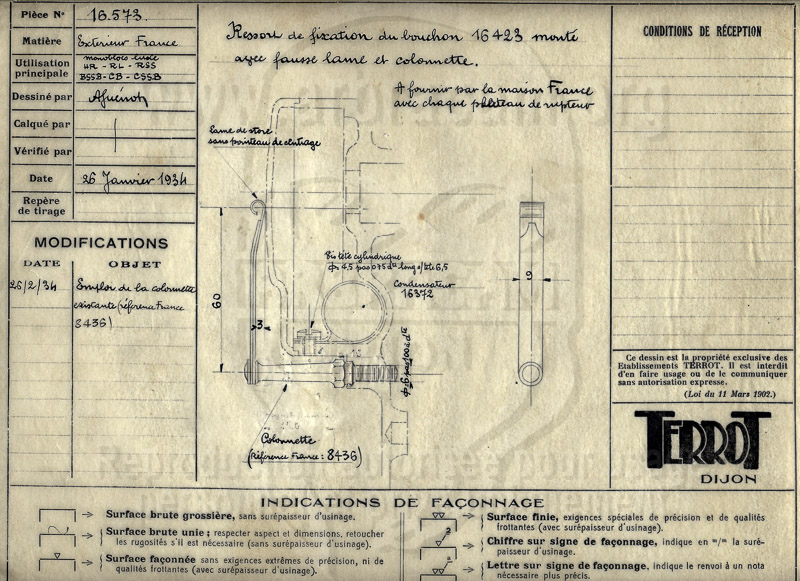 Pièce N° 16.573.
Matière Exterieur France
Utilisation principale
HR - RL - RSS
BSSB-CB-CSSB
Dessiné par
Calqué par
Vérifié par
Date 26 Janvier 1934
Repère de tirage
MODIFICATIONS
DATE OBJET
26/2/34 Emploi de la colonnette
existante (référence France
8436)
Ressort de fixation du bouchon 16423 monté
avec fausse lame et colonnette.
A fournir par la maison France
avec chaque plateau de rupteur
lame de store
sans pointeau de centrage
Vis tête cylindrique
Condensateur
16372
60
3
9
Colonnette
(Référence France: 8436)
CONDITIONS DE RÉCEPTION
Ce dessin est la propriété exclusive des
Etablissements TERROT. Il est interdit
d'en faire usage ou de le communiquer
sans autorisation expresse.
(Loi du 11 Mars 1902.)
TERROT
DIJON
INDICATIONS DE FAÇONNAGE
Surface brute grossière, sans surépaisseur d'usinage.
Surface brute unie ; respecter aspect et dimensions, retoucher
les rugosités s'il est nécessaire (sans surépaisseur d'usinage).
Surface façonnée sans exigences extrêmes de précision, ni de
qualités frottantes (avec surépaisseur d'usinage).
Surface finie, exigences spéciales de précision et de qualités
frottantes (avec surépaisseur d'usinage).
Chiffre sur signe de façonnage, indique en m/m la suré-
paisseur d'usinage.
Lettre sur signe de façonnage, indique le renvoi à un nota
nécessaire plus précis.